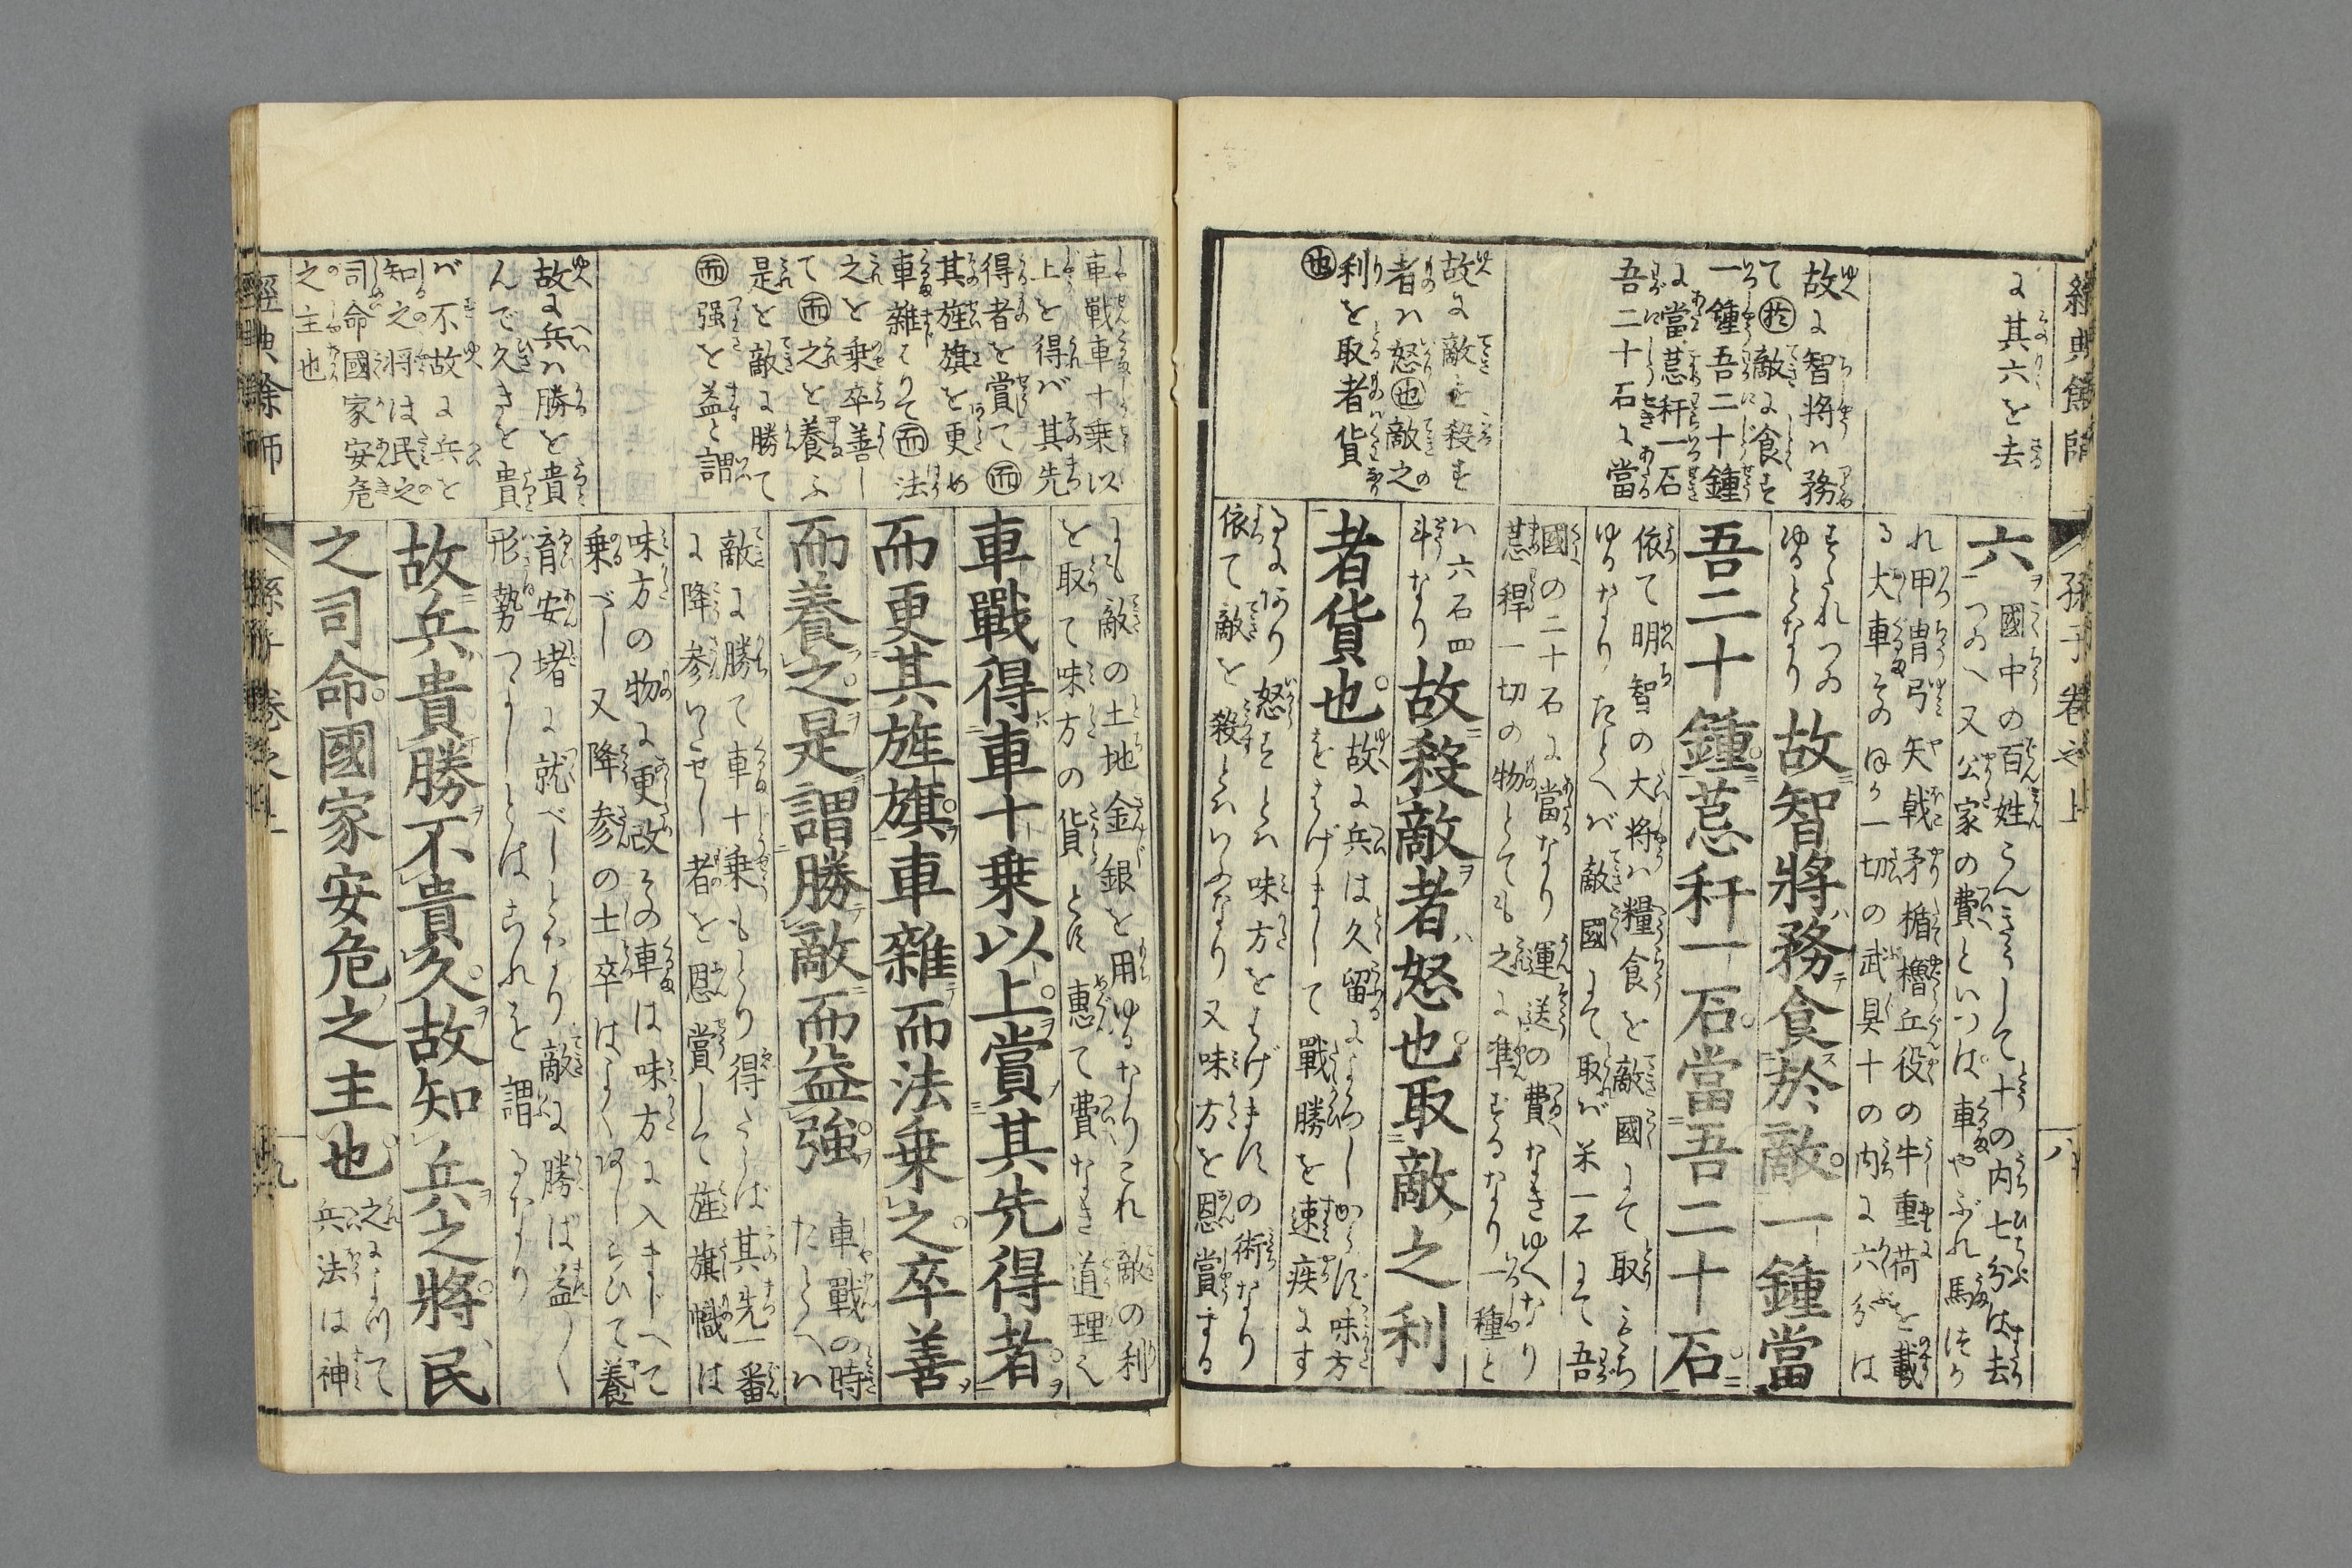 經典餘師
孫子卷之上
八
其六を去
故に智將ハ務
て於敵に食す
一鍾吾二十鍾
に當𦮼秆一石
吾二十石に當
故に敵を殺す
者ハ怒也敵之
利を取者貨
也
六
國中の百姓こんきうして十の内七分は去
れ甲冑弓矢戟矛楯櫓丘役の牛重荷を載
る大車そのほか一切の武具十の内に六分は
故智將務食於敵一鍾當
吾二十鍾𦮼秆一石當吾二十石
依て明智の大将ハ糧食を敵國にて取もち
ゆるなりたとへバ敵國にて取バ米一石にて吾
國の二十石に當なり運送の費なきゆへなり
𦮼稈一切の物とても之に準ずるなり一種と
ハ六石四
斗なり
故殺敵者怒也取敵之利
者貨也
故に兵は久留によろしからず味方
をはげまして戰勝を速疾にす
るにあり怒すとハ味方をはげますの術なり
依て敵を殺とハいふなり又味方を恩賞する
車戰車十乗以
上を得バ其先
得者を賞て而
其旌旗を更め
車雜はりて而法
之を乗卒善し
て而之を養ふ
是を敵に勝て
而强を益と謂
故に兵ハ勝を貴
んで久きを貴
バ不故に兵を
知之将は民之
司命國家安危
之主也
にも敵の土地金銀を用ゆるなりこれ敵の利
を取て味方の貨とす惠て費なき道理也
車戰得車十乗以上賞其先得者
而更其旌旗車雜而法乗之卒善
而養之是謂勝敵而益強
車戰の時
たとへハ
敵に勝て車十乗もとり得たらば其先一番
に降参いたせし者を恩賞して旌旗幟は
味方の物に更改その車は味方に入まじへて
乗べし又降参の士卒はよくあしらひて養
育安堵に就べしとなり敵に勝ば益〱
形勢つよしとはこれを謂るなり
故兵貴勝不貴久故知兵之將民
之司命國家安危之主也
之によつて
兵法は神
經典餘師
孫子卷之上
九